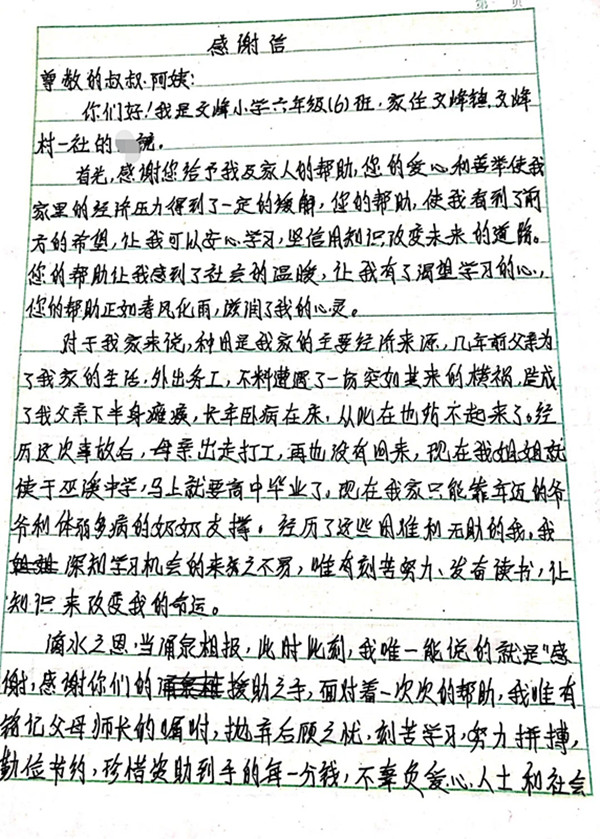 第 页
感谢信
尊敬的叔叔.阿姨:
你们好!我是文峰小学六年级(6)班,家住文峰镇文峰
村一社的
首先,感谢您给予我及家人的帮助,您的爱心和善举使我
家里的经济压力得到了一定的缓解,您的帮助,使我看到了前
方的希望,让我可以安心学习,坚信用知识改变未来的道路。
您的帮助让我感到了社会的温暖,让我有了渴望学习的心,
你的帮助正如春风化雨,滋润了我的心灵。
对于我家来说,种田是我家的主要经济来源,几年前父亲为
了我家的生活.外出务工,不料遭遇了一场突如其来的横祸,造成
了我父亲下半身瘫痪,长年卧病在床,从此在也站不起来了。经
历这次事故后,母亲出走打工,再也没有回来,现在我姐姐就
读于巫溪中学,马上就要高中毕业了。现在我家只能靠年迈的爷
爷和体弱多病的奶奶支撑。经历了这些困难和无助的我,我
深知学习机会的来之不易,唯有刻苦努力、发奋读书,让
知识来改变我的命运。
滴水之恩.当涌泉相报,此时此刻,我唯一能说的就是"感
谢,感谢你们的援助之手,面对着一次次的帮助,我唯有
铭记父母师长的嘱咐,抛弃后顾之忧,刻苦学习,努力拼搏,
勤俭节约,珍惜资助到手的每一分钱,不辜负爱心人士和社会